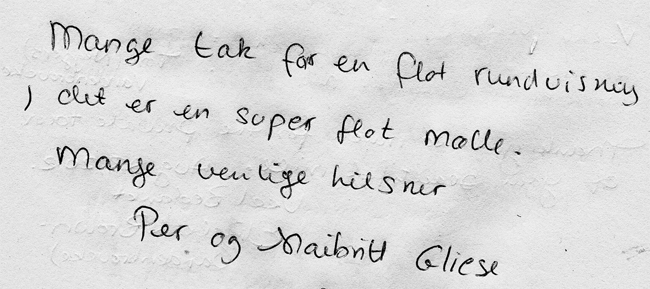 Mange tak for en flot rundvisning
, det er en super flot mølle.
Mange venlige hilsner
Per og Maibritt Gliese